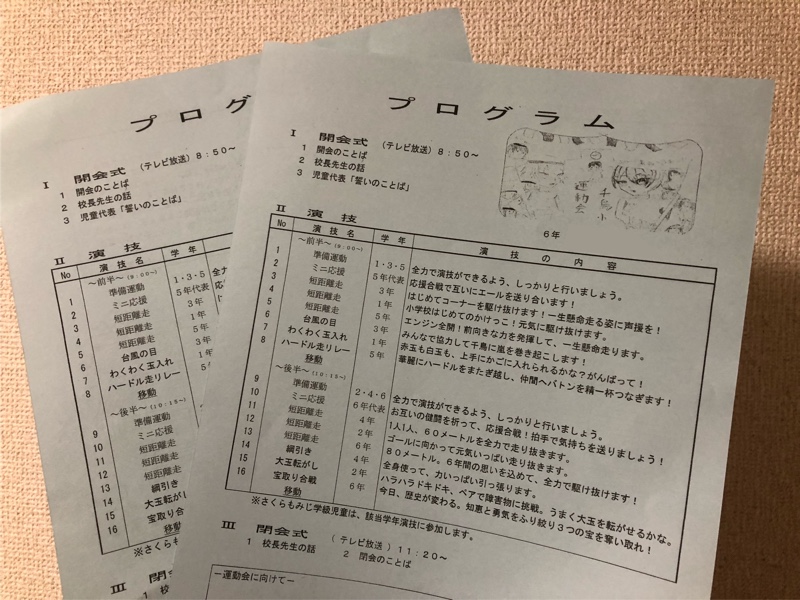 プログラ
Ⅰ 開会式 (テレビ放送) 8:50~
1 開会のことば
2 校長先生の話
3 児童代表「誓いのことば」
Ⅱ 演技
No 演技名 学年
~前半~(9:00~)
1 準備運動 1・3・5 全
2 ミニ応援 5年代表 応
3 短距離走 3年
4 短距離走 1年
5 短距離走 5年
6 台風の目 3年
7 わくわく玉入れ 1年
8 ハードル走リレー
移動
~後半~(10:15~)
9 準備運動
10 ミニ応援
11 短距離走
12 短距離走
13 短距離走
14 綱引き
15 大玉転がし
16 宝取り合戦
移動
※さくらも
Ⅲ 閉会式
1 校長
プログラム
Ⅰ 開会式 (テレビ放送) 8:50~
1 開会のことば
2 校長先生の話
3 児童代表「誓いのことば」
千鳥小
運動会
6年
Ⅱ 演技
No 演技名 学年 演技の内容
~前半~(9:00~)
1 準備運動 1・3・5 全力で演技ができるよう、しっかりと行いましょう。
2 ミニ応援 5年代表 応援合戦で互いにエールを送り合います!
3 短距離走 3年 はじめてコーナーを駆け抜けます!一生懸命走る姿に声援を!
4 短距離走 1年 小学校はじめてのかけっこ!元気に駆け抜けます。
5 短距離走 5年 エンジン全開!前向きな力を発揮して、一生懸命走ります。
6 台風の目 3年 みんなで協力して千鳥に嵐を巻き起こします!
7 わくわく玉入れ 1年 赤玉も白玉も、上手にかごに入れられるかな?がんばって!
8 ハードル走リレー 5年 華麗にハードルをまたぎ越し、仲間へバトンを精一杯つなぎます!
移動
~後半~(10:15~)
9 準備運動 2・4・6 全力で演技ができるよう、しっかりと行いましょう。
10 ミニ応援 6年代表 お互いの健闘を祈って、応援合戦!拍手で気持ちを送りましょう!
11 短距離走 4年 1人1人、60メートルを全力で走り抜きます。
12 短距離走 2年 ゴールに向かって元気いっぱい走り抜きます。
13 短距離走 6年 80メートル。6年間の思いを込めて、全力で駆け抜けます!
14 綱引き 4年 全身使って、力いっぱい引っ張ります。
15 大玉転がし 2年 ハラハラドキドキ、ペアで障害物に挑戦。うまく大玉を転がせるかな。
16 宝取り合戦 6年 今日、歴史が変わる。知恵と勇気をふり絞り3つの宝を奪い取れ!
移動
※さくらもみじ学級児童は、該当学年演技に参加します。
Ⅲ 閉会式 (テレビ放送) 11:20~
1 校長先生の話 2 閉会のことば
-運動会に向けて-